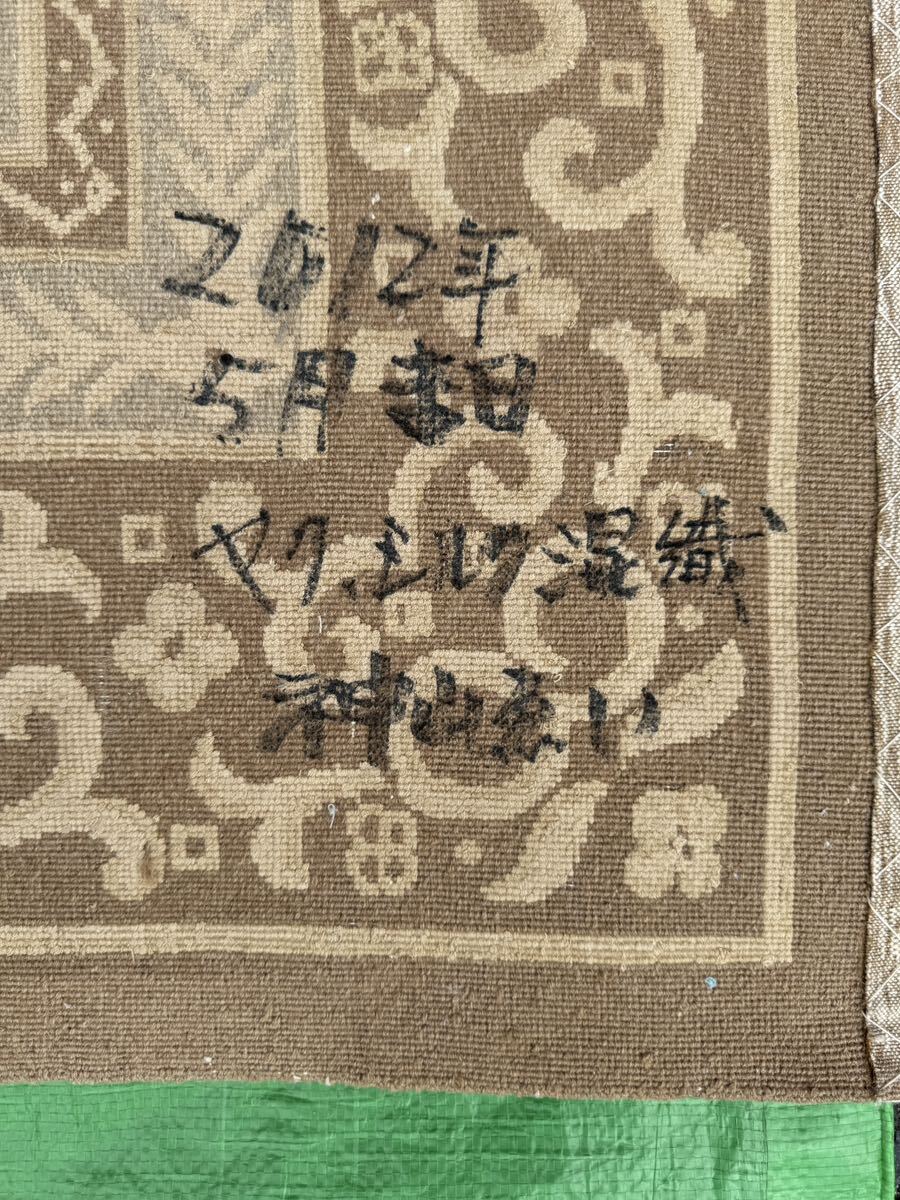 2012年
5月 日
ヤク、シルク混織
神山